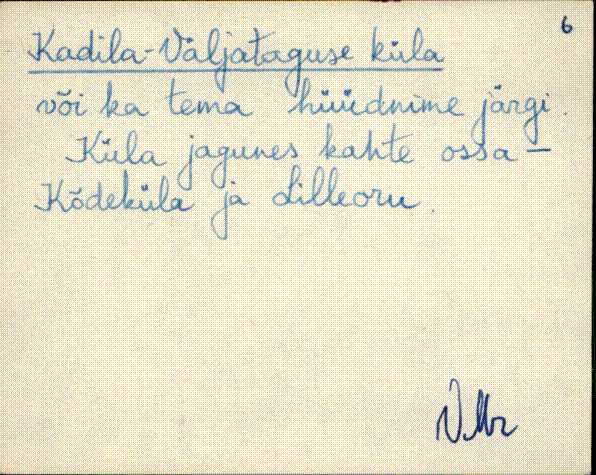 6
Kadila-Väljataguse küla
või ka tema hüüdnime järgi.
Küla jagunes kahte ossa –
Kõdeküla ja Lilleoru.